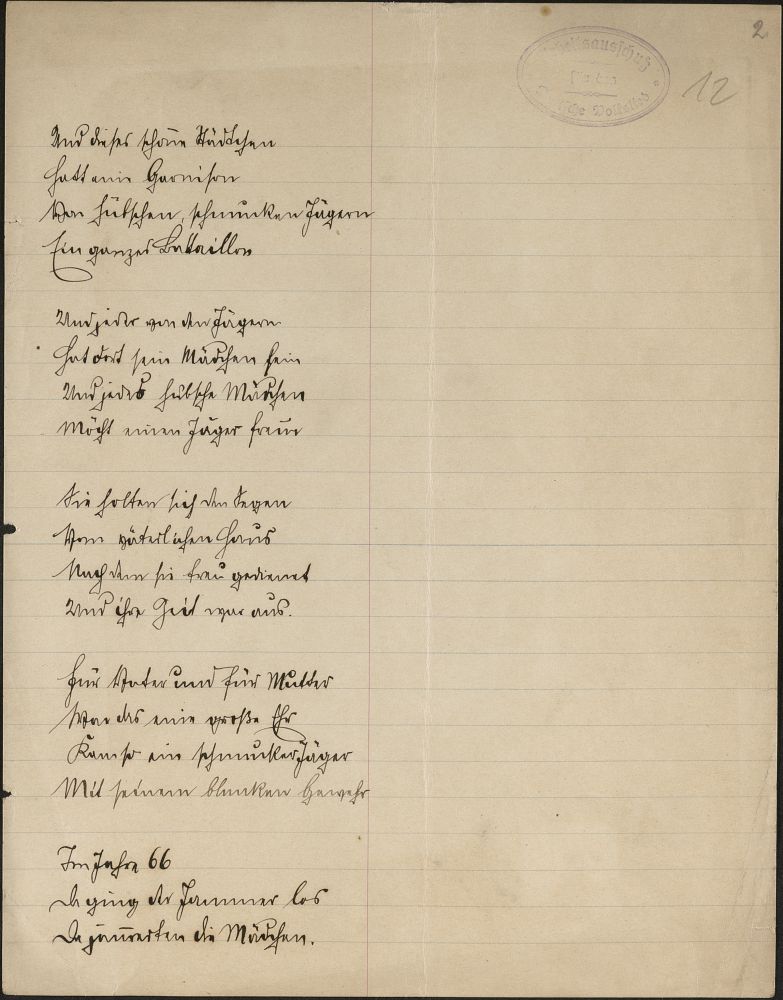 2
Arbeitsausschuß
für das
Deutsche Volkslied
12
Und dieses schöne Städtchen
Hatt eine Garnison
Von hübschen, schmucken Jägern
Ein ganzes Bataillon
Und jeder von den Jägern
Hat dort sein Mädchen fein
Und jedes hübsche Mädchen
Möcht einen Jäger frein
Sie holten sich den Segen
Vom väterlichen Haus
Nachdem sie treu gedienet
Und ihre Zeit war aus.
Für Vater und für Mutter
War das eine große Ehr
Kam so ein schmucker Jäger
Mit seinem blanken Gewehr
Im Jahre 66
Da ging der Jammer los
Da jam̅erten die Mädchen.